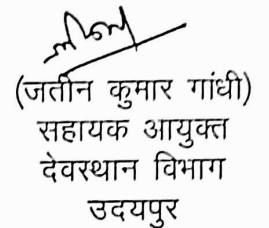 (जतीन कुमार गांधी)
सहायक आयुक्त
देवस्थान विभाग
उदयपुर